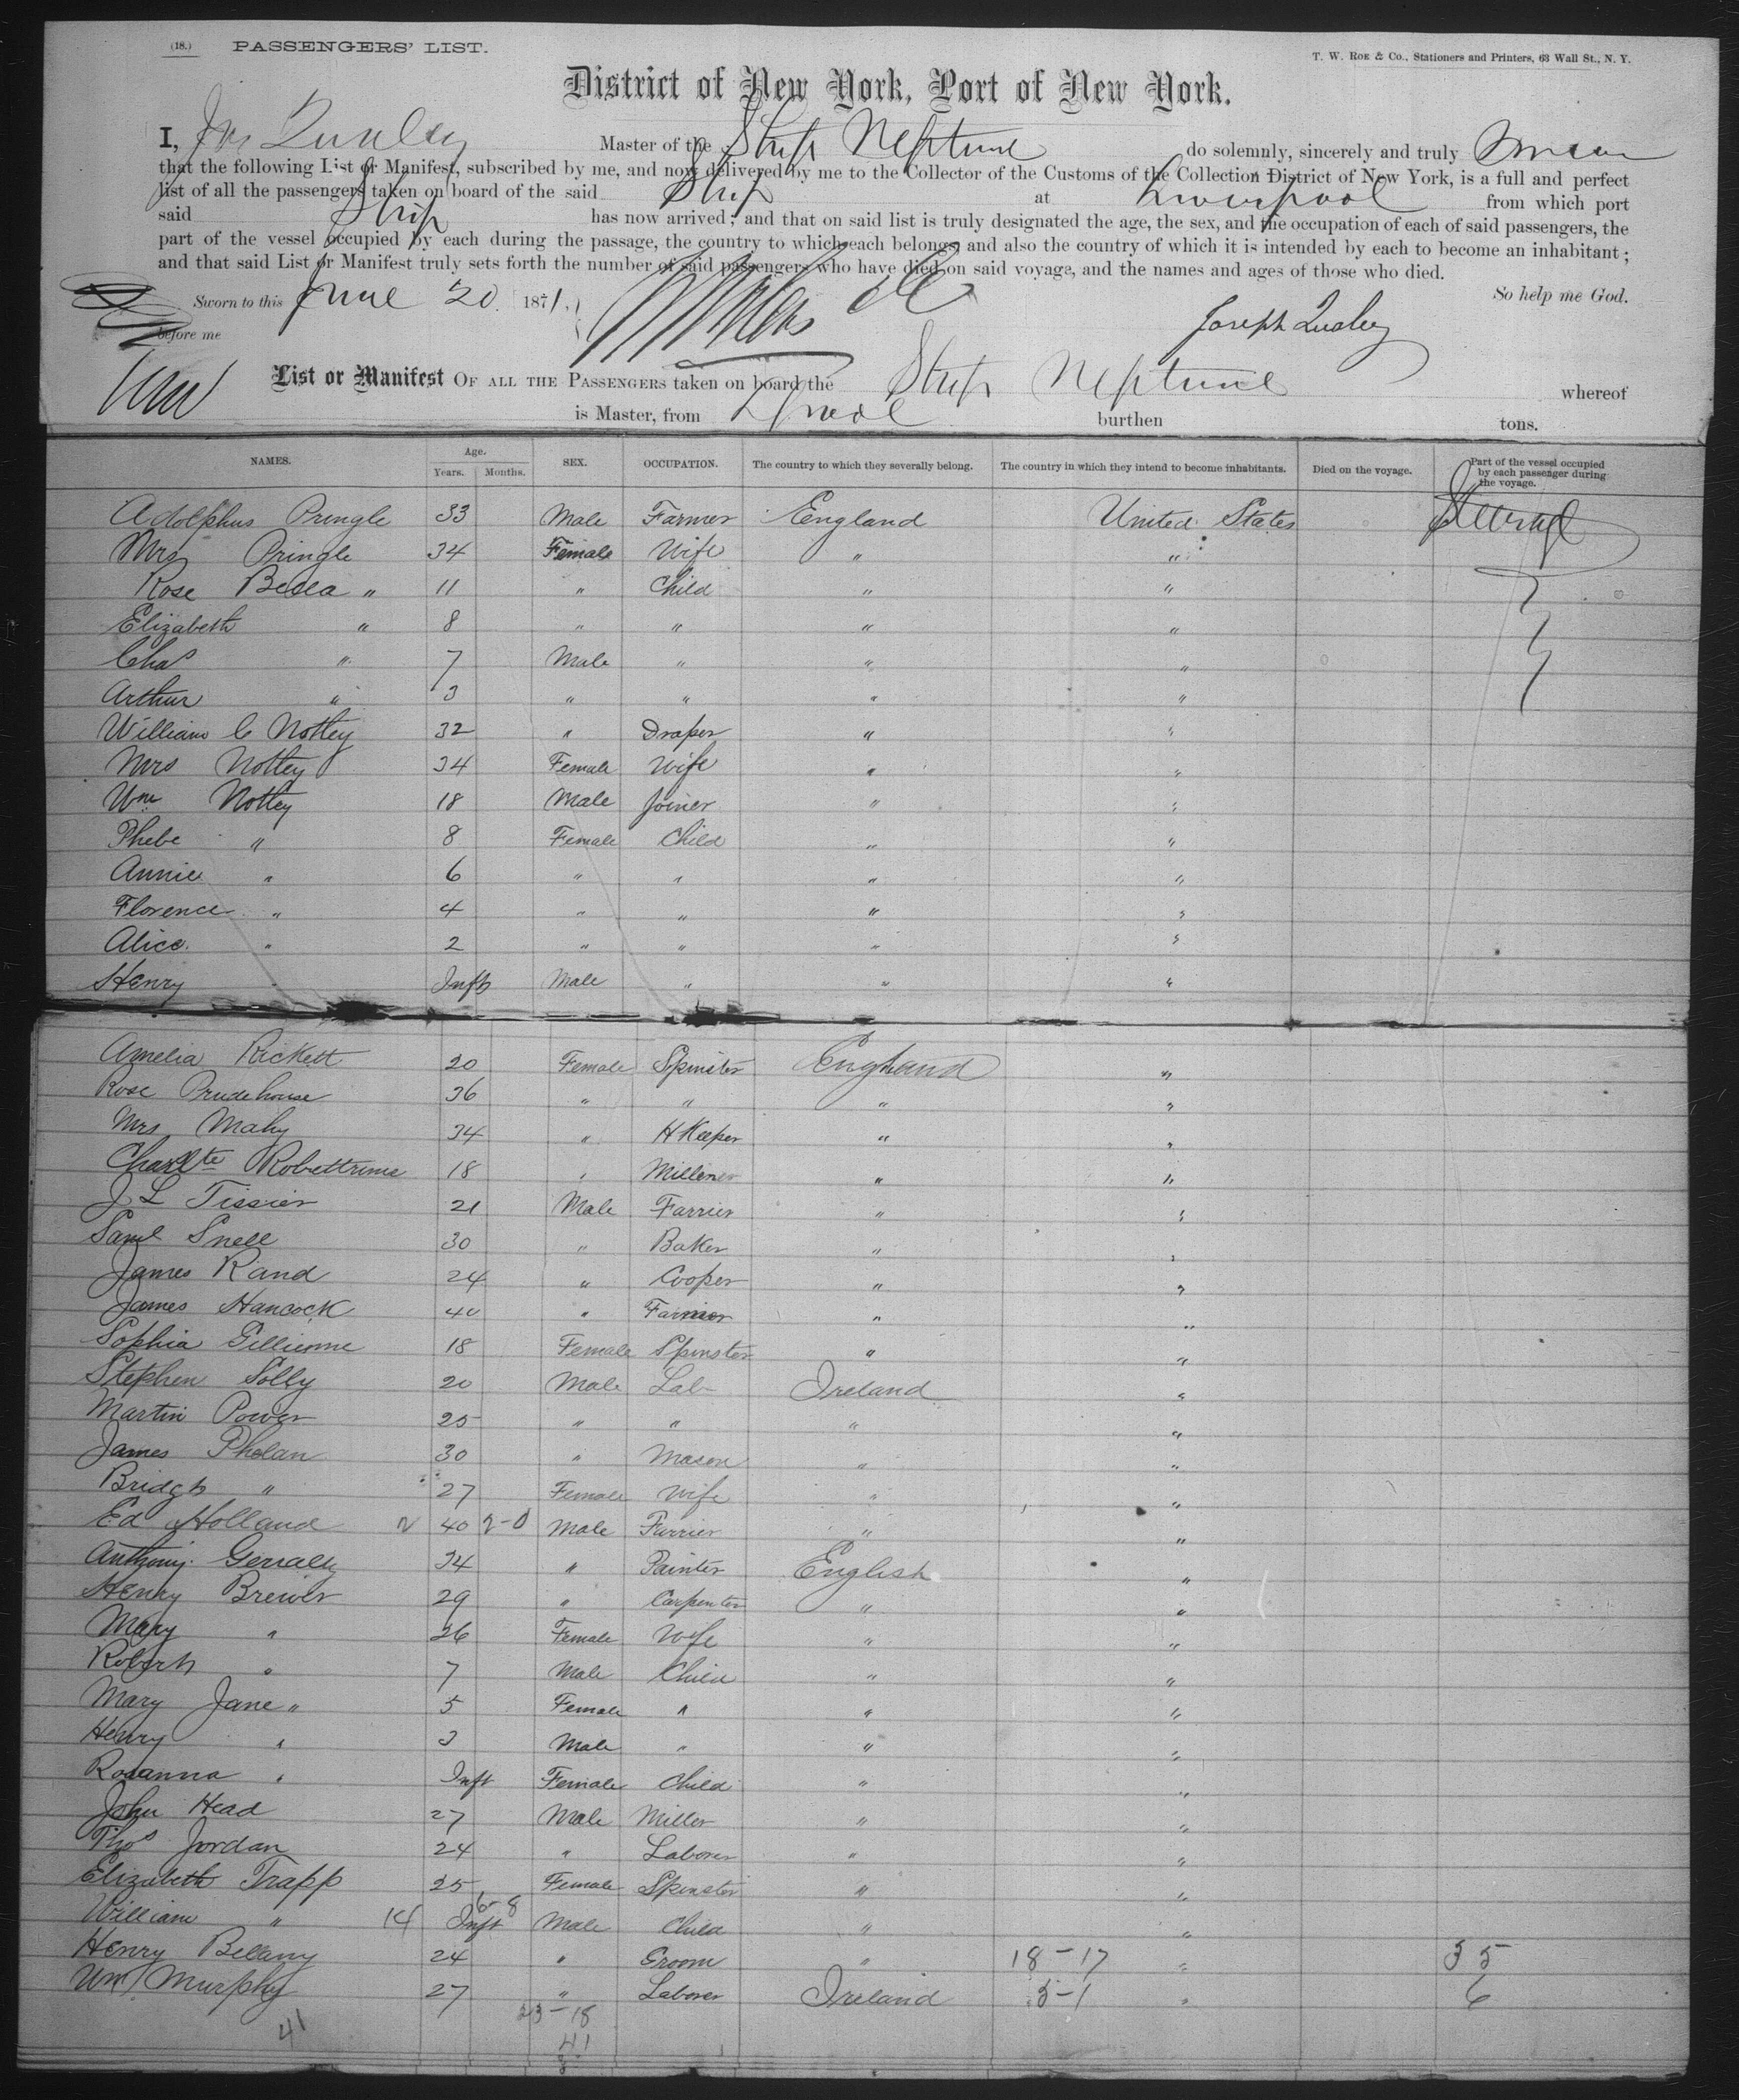 (18.) PASSENGERS' LIST. T. W. Roe & Co., Stationers and Printers, 63 Wall St., N. Y.
District of New York, Port of New York.
I, Jos Master of the Ship Neptune do solemnly, sincerely and truly Swear
that the following List or Manifest, subscribed by me, and now delivered by me to the Collector of the Customs of the Collection District of New York, is a full and perfect
list of all the passengers taken on board of the said Ship at Liverpool from which port
said Ship has now arrived; and that on said list is truly designated the age, the sex, and the occupation of each of said passengers, the
part of the vessel occupied by each during the passage, the country to which each belongs, and also the country of which it is intended by each to become an inhabitant;
and that said List or Manifest truly sets forth the number of said passengers who have died on said voyage, and the names and ages of those who died.
So help me God.
Sworn to this June 20 1871.
before me Joseph
List or Manifest OF ALL THE PASSENGERS taken on board the Ship Neptune whereof
is Master, from L'pool burthen tons.
NAMES. Age. Years. Months. SEX. OCCUPATION. The country to which they severally belong. The country in which they intend to become inhabitants. Died on the voyage. Part of the vessel occupied by each passenger during the voyage.
Adolphus Pringle 33 Male Farmer England United States Steerage
Mrs Pringle 34 Female Wife " "
Rose " 11 " Child " "
Elizabeth " 8 " " " "
Chas " 7 Male " " "
Arthur " 3 " " " "
William C Nottey 32 " Draper " "
Mrs Nottey 34 Female Wife " "
Wm Nottey 18 Male Joiner " "
Phebe " 8 Female Child " "
Annie " 6 " " " "
Florence " 4 " " " "
Alice " 2 " " " "
Henry Inft Male " " "
Amelia Rickett 20 Female Spinster England "
Rose Prudehouse 36 " " " "
Mrs Mahy 34 " H Keeper " "
Charlte 18 " Millener " "
J L Tissier 21 Male Farrier " "
Saml Snell 30 " Baker " "
James Rand 24 " Cooper " "
James Hancock 40 " Farmer " "
Sophia 18 Female Spinster " "
Stephen Solly 20 Male Lab Ireland "
Martin Power 25 " " " "
James Phelan 30 " Mason " "
Bridgt " 27 Female Wife " "
Ed Holland 40 2-0 Male Furrier " "
Anthony 34 " Painter English "
Henry Brewer 29 " Carpenter " "
Mary " 26 Female Wife " "
Robert " 7 Male Child " "
Mary Jane " 5 Female " " "
Henry " 3 Male " " "
Rosanna " Inft Female Child " "
John Head 27 Male Miller " "
Thos Jordan 24 " Laborer " "
Elizabeth Trapp 25 Female Spinster " "
William " 14 Inft 6-8 Male Child " "
Henry Bellany 24 " Groom " 18-17 " 35
Wm Murphy 27 " Laborer Ireland 5-1 " 6
41 23-18
41